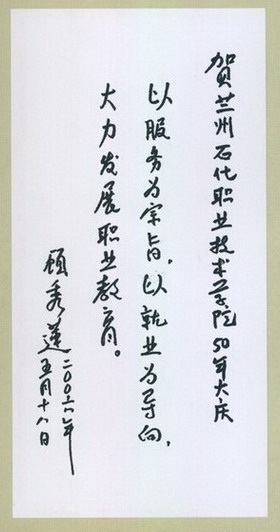 贺兰州石化职业技术学院50年大庆
以服务为宗旨，以就业为导向，
大力发展职业教育。
顾秀莲
二〇〇六年
五月十八日